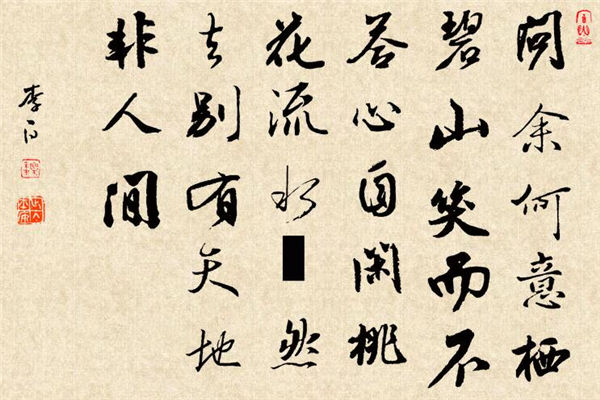 问余何意栖
碧山笑而不
答心自闲桃
花流水然
去别有天地
非人间
李白